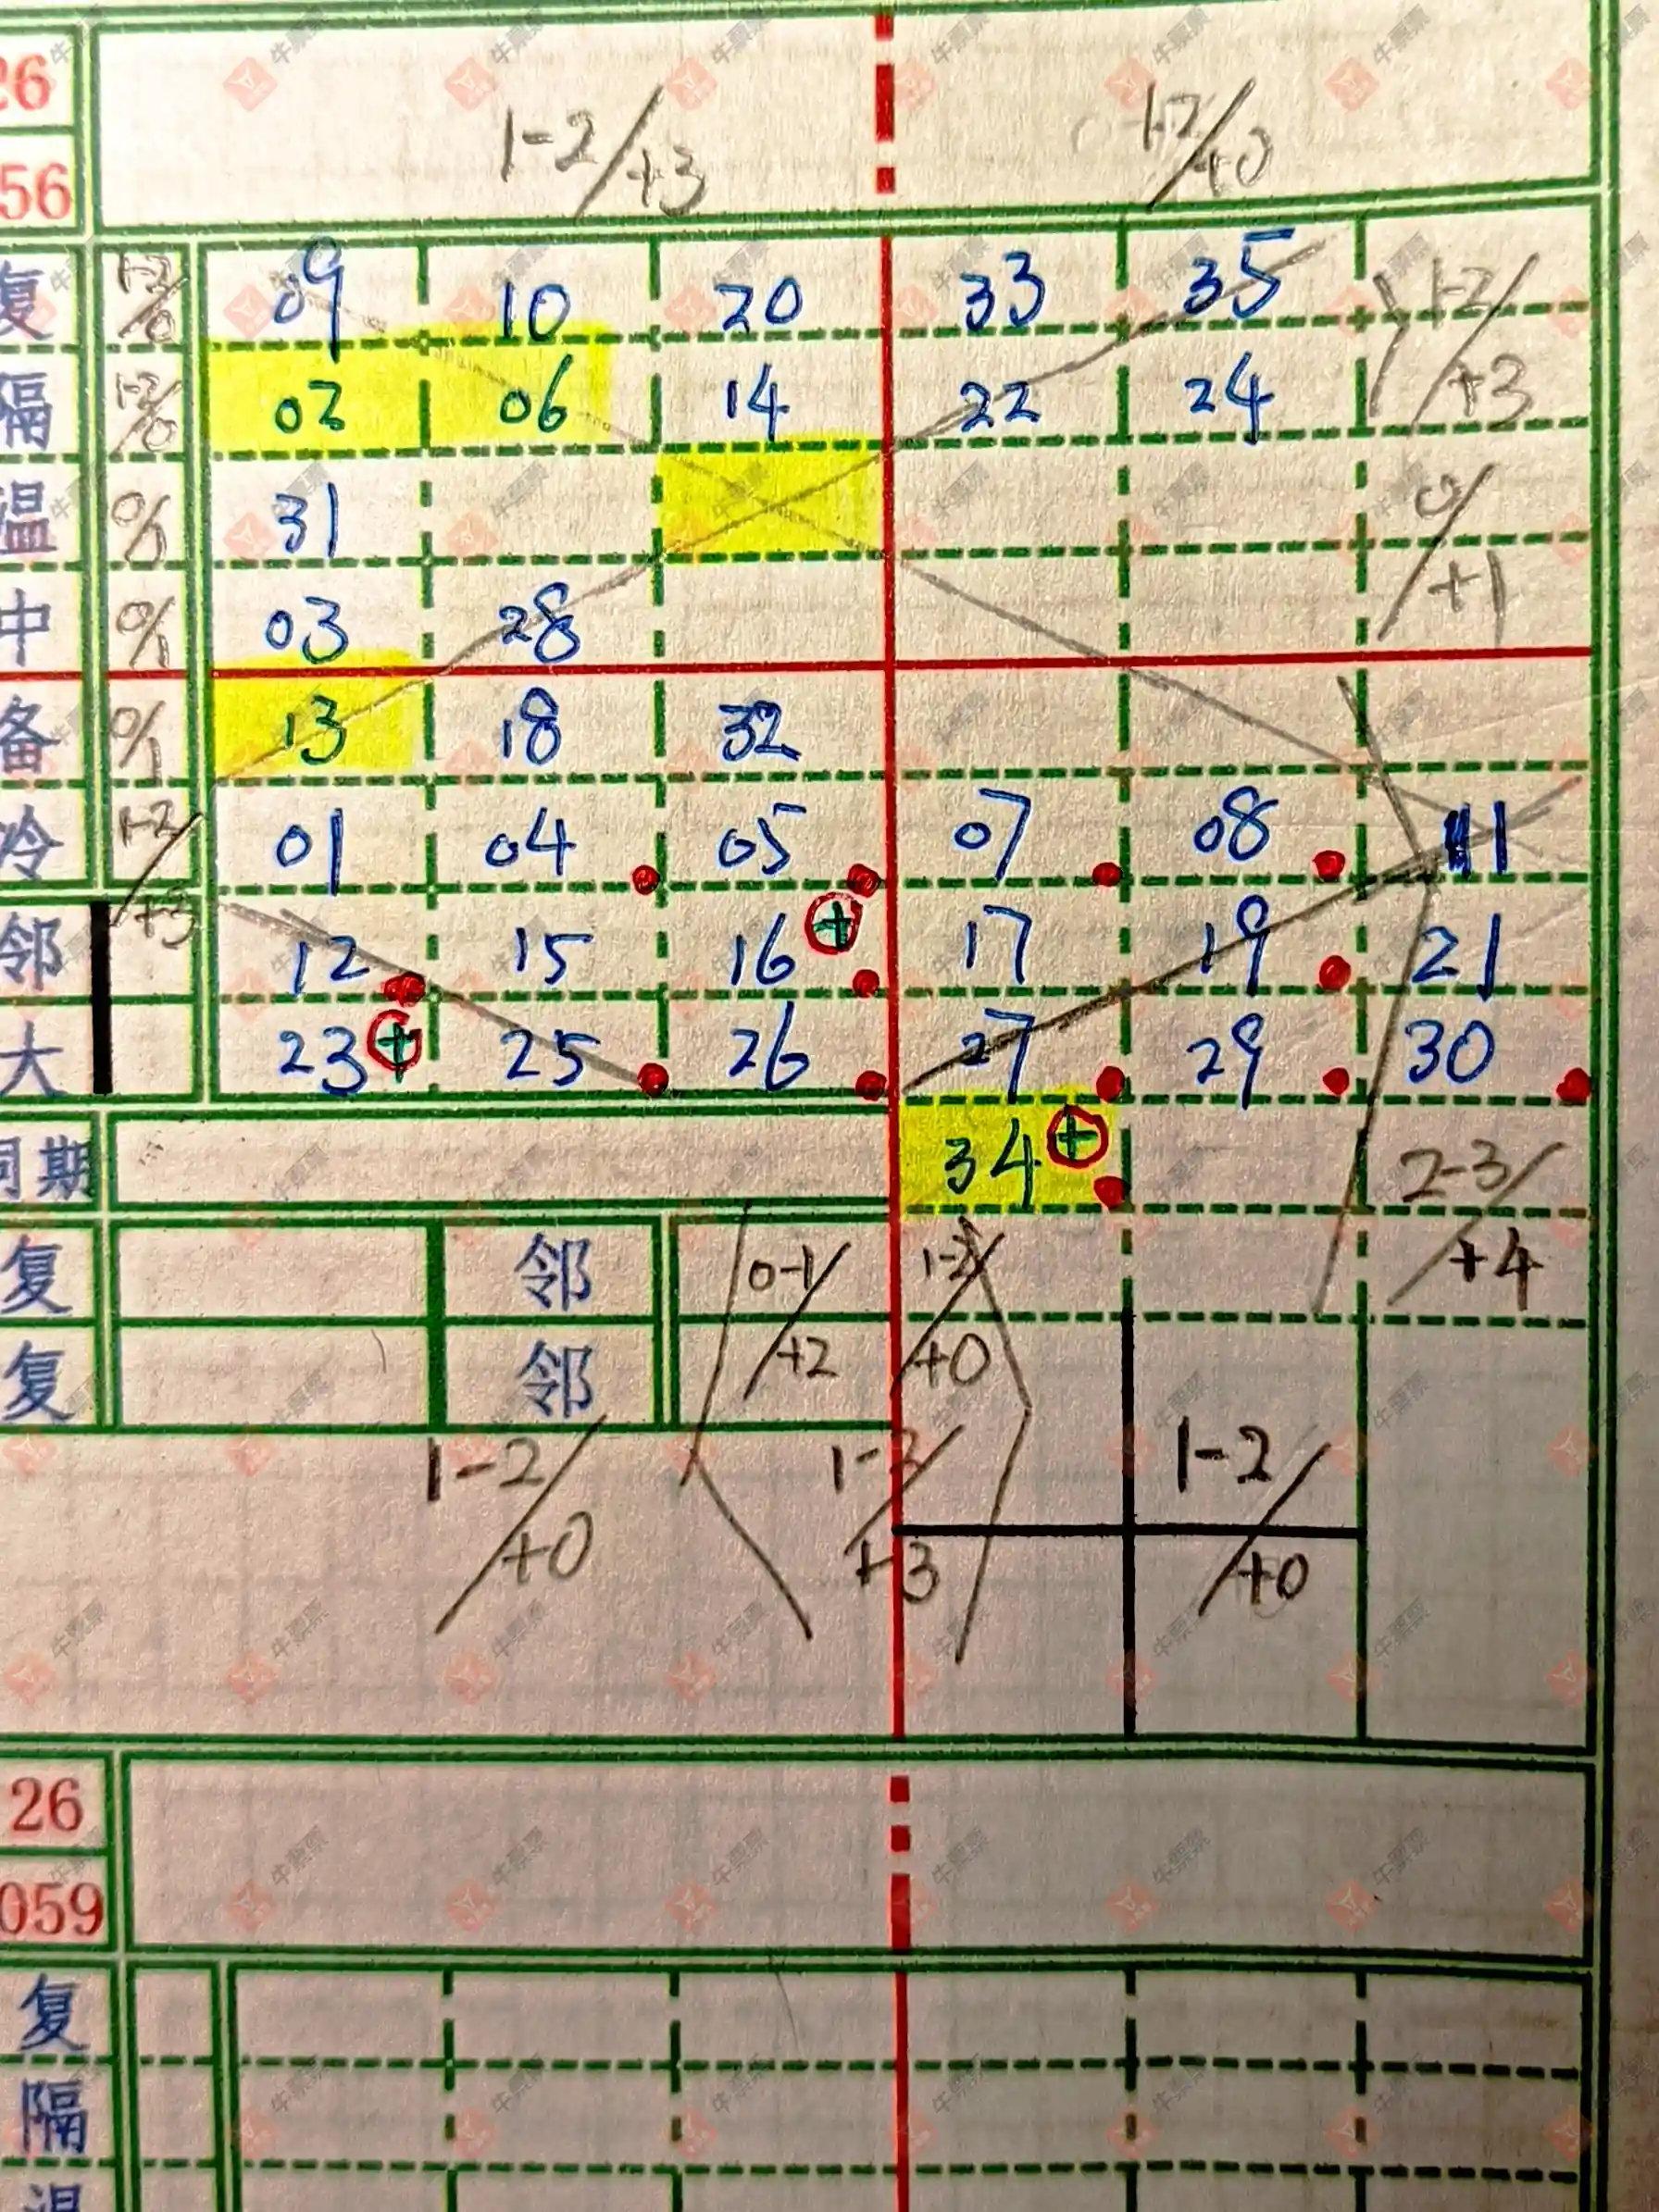 26
1-2/+3 1-2/+0
56
复 1-2/0 09 10 20 33 35 1-2/+3
隔 1-2/0 02 06 14 22 24
温 0/1 31 0/+1
中 0/1 03 28
备 0/1 13 18 32
冷 1-2/+3 01 04 05 07 08 11
邻 12 15 16 + 17 19 21
大 23 + 25 26 27 29 30
同期 34 + 2-3/+4
复 邻 0-1/+2 1-2/+0
复 邻
1-2/+0 1-2/+3 1-2/+0
26
059
复
隔
温
牛票票